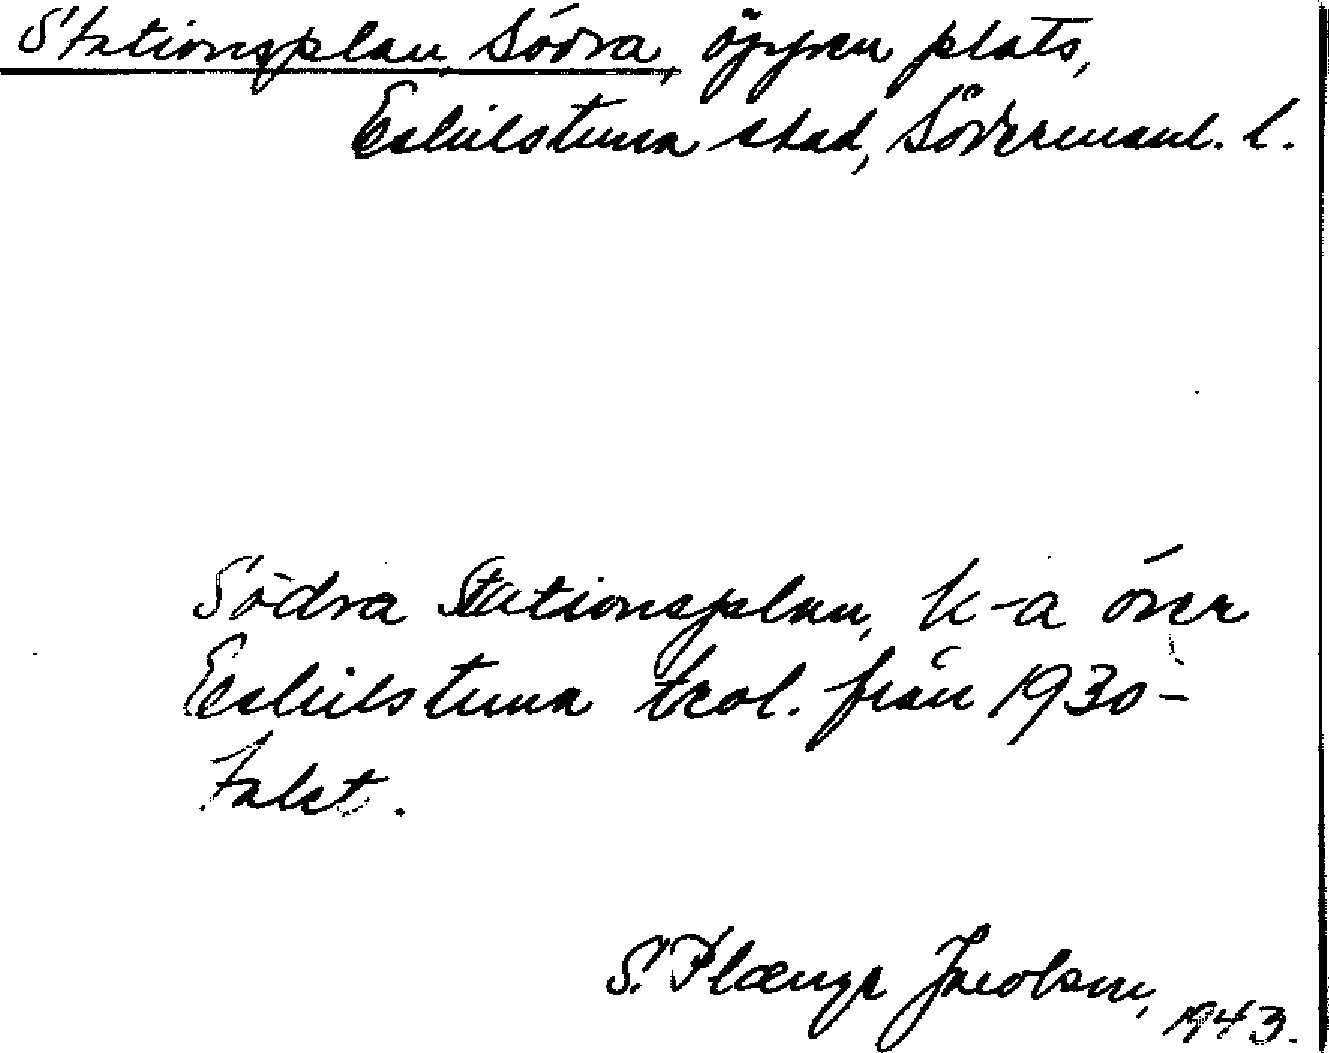 Stationsplan, Södra, öppen plats,
Eskilstuna stad, Södermanl. l.
Södra Stationsplan, k-a över
Eskilstuna trol. från 1930-
talet.
S. Plænge Jacobson,
1943.